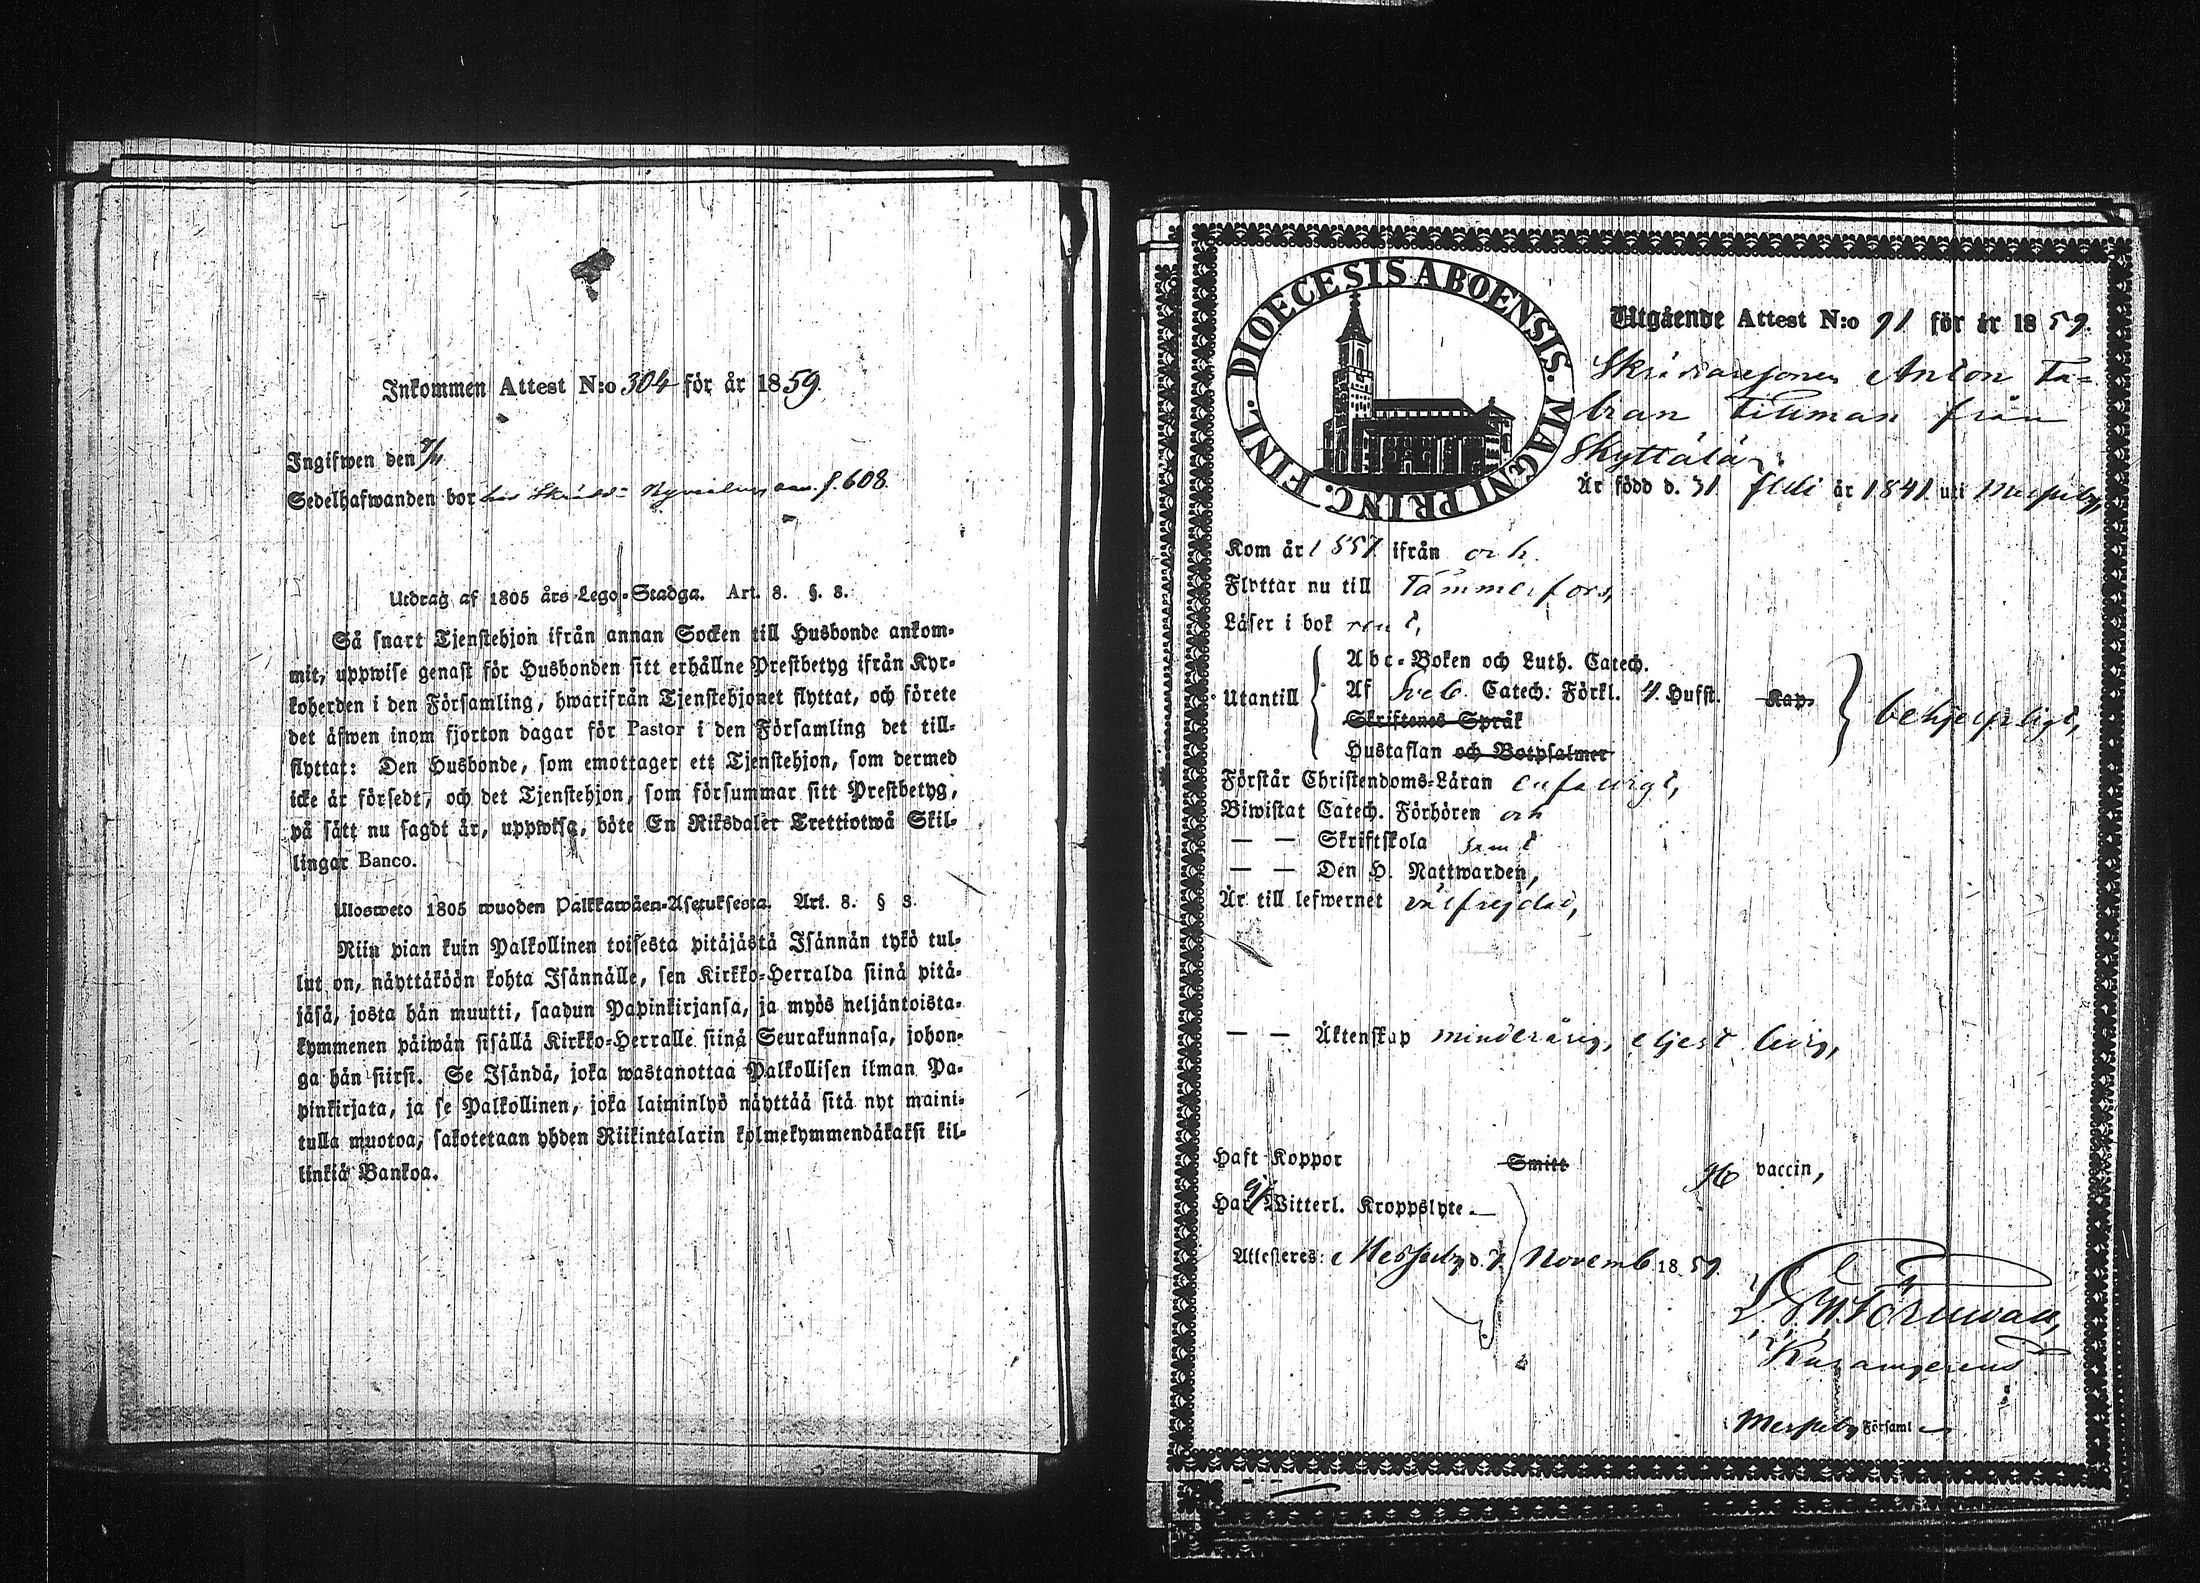 Inkommen Attest N:o 304 för år 1859.
Ingifwen den 9/11
Sedelhafwanden bor hos f. 608
Utdrag af 1805 års Lego-Stadga. Art. 8. §. 8.
Så snart Tjenstehjon ifrån annan Socken till Husbonde ankom-
mit, uppwise genast för Husbonden sitt erhållne Prestbetyg ifrån Kyr-
koherden i den Församling, hwarifrån Tjenstehjonet flyttat, och förete
det äfwen inom fjorton dagar för Pastor i den Församling det till-
flyttat: Den Husbonde, som emottager ett Tjenstehjon, som dermed
icke är försedt, och det Tjenstehjon, som försummar sitt Prestbetyg,
på sätt nu sagdt är, uppwisa, böte En Riksdaler Trettiotwå Skil-
lingar Banco.
Ulosweto 1805 wuoden Palkkawäen-Asetuksesta. Art. 8. § 8.
Niin pian kuin Palkollinen toisesta pitäjästä Isännän tykö tul-
lut on, näyttäköön kohta Isännälle, sen Kirkko-Herralda siinä pitä-
jäsä, josta hän muutti, saadun Papinkirjansa, ja myös neljäntoista-
kymmenen päiwän sisällä Kirkko-Herralle siinä Seurakunnasa, johon-
ga hän siirsi. Se Isändä, joka wastanottaa Palkollisen ilman Pa-
pinkirjata, ja se Palkollinen, joka laiminlyö näyttää sitä nyt maini-
tulla muotoa, sakotetaan yhden Riikintalarin kolmekymmendäkaksi kil-
linkiä Bankoa.
DIOECESIS ABOENSIS. MAGNI PRINC. FINL.
Utgående Attest N:o 91 för år 1859.
Anton Fa=
bian Tillman från
Skyttälä,
Är född d. 31 Juli år 1841 uti Messuby,
Kom år 1857 ifrån och
Flyttar nu till Tammerfors,
Läser i bok rent,
Utantill
Abc-Boken och Luth. Catech.
Af Sveb. Catech. Förkl. 4. Hufst. Kap.
Skriftenes Språk
Hustaflan och Botpsalmer
behjelpligt,
Förstår Christendoms-Läran enfaldigt,
Biwistat Catech. Förhören och
— — Skriftskola samt
— — Den H. Nattwarden,
Är till lefwernet välfrejdad,
— — Äktenskap minderårig, eljest ledig,
Haft Koppor Smitt vaccin,
Har ej Witterl. Kroppslyte.
Attesteras: Messuby d. 7 Novemb 1859.
Messuby Församl